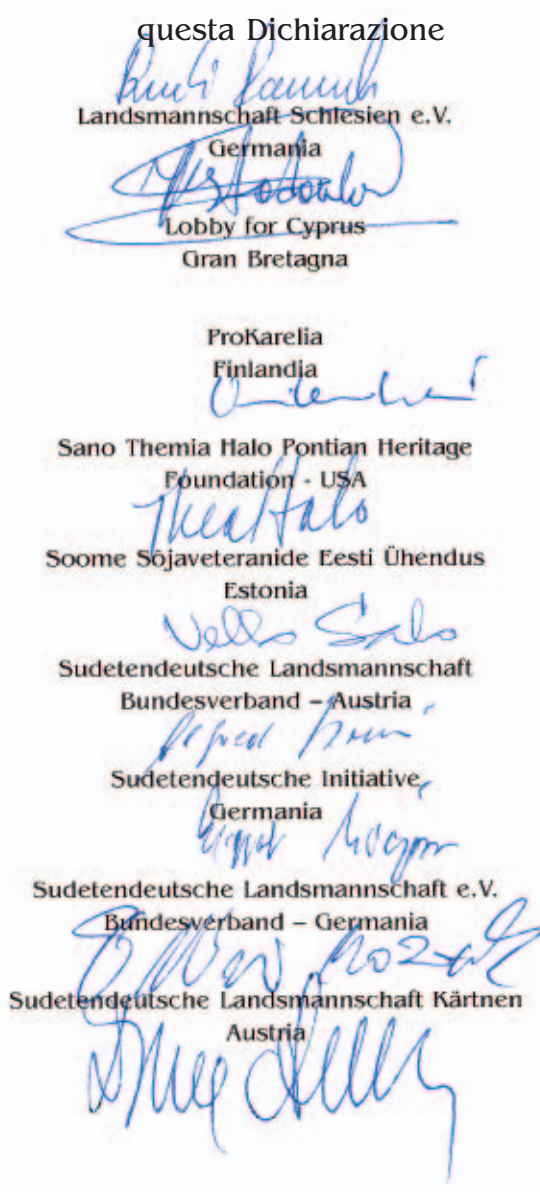 questa Dichiarazione
Landsmannschaft Schlesien e.V.
Germania
Lobby for Cyprus
Gran Bretagna
ProKarelia
Finlandia
Sano Themia Halo Pontian Heritage
Foundation - USA
Thea Halo
Soome Sõjaveteranide Eesti Ühendus
Estonia
Vello Salo
Sudetendeutsche Landsmannschaft
Bundesverband – Austria
Sudetendeutsche Initiative
Germania
Sudetendeutsche Landsmannschaft e.V.
Bundesverband – Germania
Sudetendeutsche Landsmannschaft Kärtnen
Austria